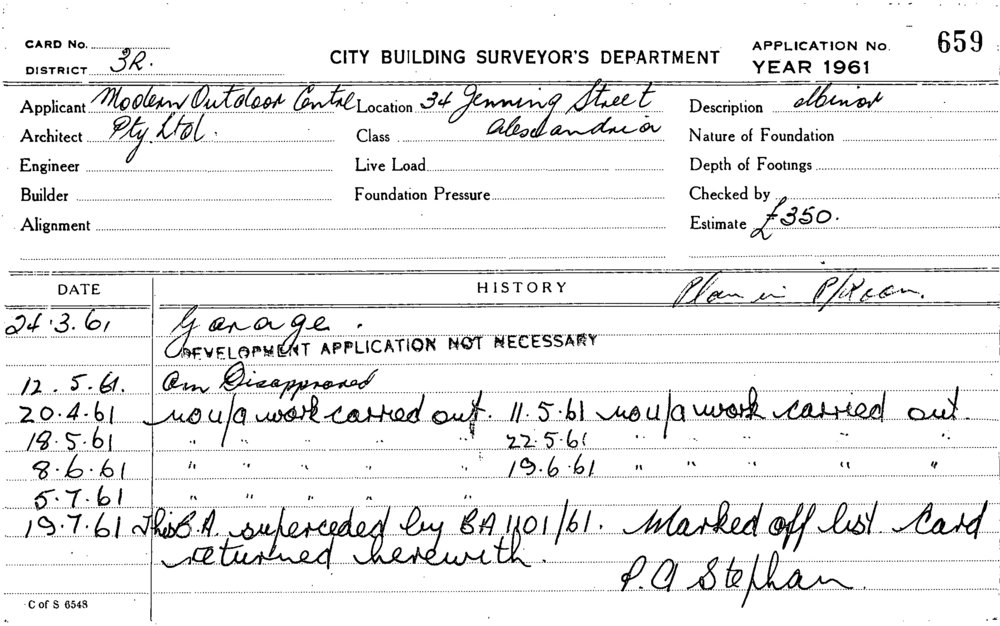 CARD No.
DISTRICT 3R.
CITY BUILDING SURVEYOR'S DEPARTMENT
APPLICATION No. 659
YEAR 1961
Applicant Modern Outdoor Centre Location 34 Jenning Street Description
Architect Pty. Ltd. Class Alexandria Nature of Foundation
Engineer Live Load Depth of Footings
Builder Foundation Pressure Checked by
Alignment Estimate £350.
DATE HISTORY Plan in P/Room.
24.3.61 Garage.
DEVELOPMENT APPLICATION NOT NECESSARY
12.5.61. Disapproved
20.4.61 no u/a work carried out. 11.5.61 no u/a work carried out.
18.5.61 " " " " " 22.5.61 " " " " "
8.6.61 " " " " " 19.6.61 " " " " "
5.7.61 " " " " "
19.7.61 This B.A. superceded by BA 1101/61. Marked off list Card
returned herewith.
P. A Stephan.
C of S 6548